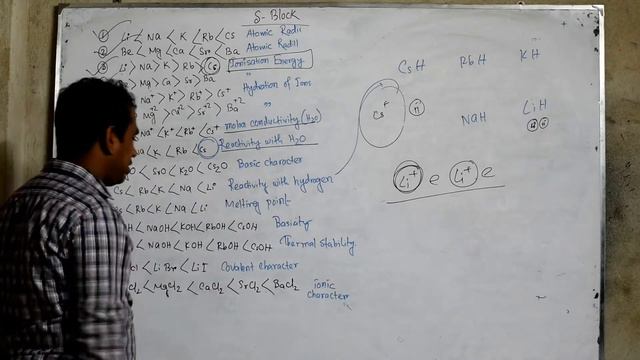 S-Block
① Li < Na < K < Rb < Cs Atomic Radii
② Be < Mg < Ca < Sr < Ba Atomic Radii
③ Li > Na > K > Rb > Cs Ionisation Energy
> Mg > Ca > Sr > Ba "
Na⁺ > K⁺ > Rb⁺ > Cs⁺ Hydration of Ions
Mg⁺² > Ca⁺² > Sr⁺² > Ba⁺² "
Na⁺ < K⁺ < Rb⁺ < Cs⁺ molar conductivity (H₂O)
Na < K < Rb < Cs Reactivity with H₂O
< SrO < K₂O < Cs₂O Basic character
Cs < Rb < K < Na < Li Reactivity with hydrogen
< Rb < K < Na < Li Melting point
H < NaOH < KOH < RbOH < CsOH Basicity
< NaOH < KOH < RbOH < CsOH Thermal stability
< LiBr < LiI Covalent character
Cl₂ < MgCl₂ < CaCl₂ < SrCl₂ < BaCl₂ ionic character
CsH RbH KH
Cs⁺ H
NaH LiH
H H
Li⁺ e Li⁺ e